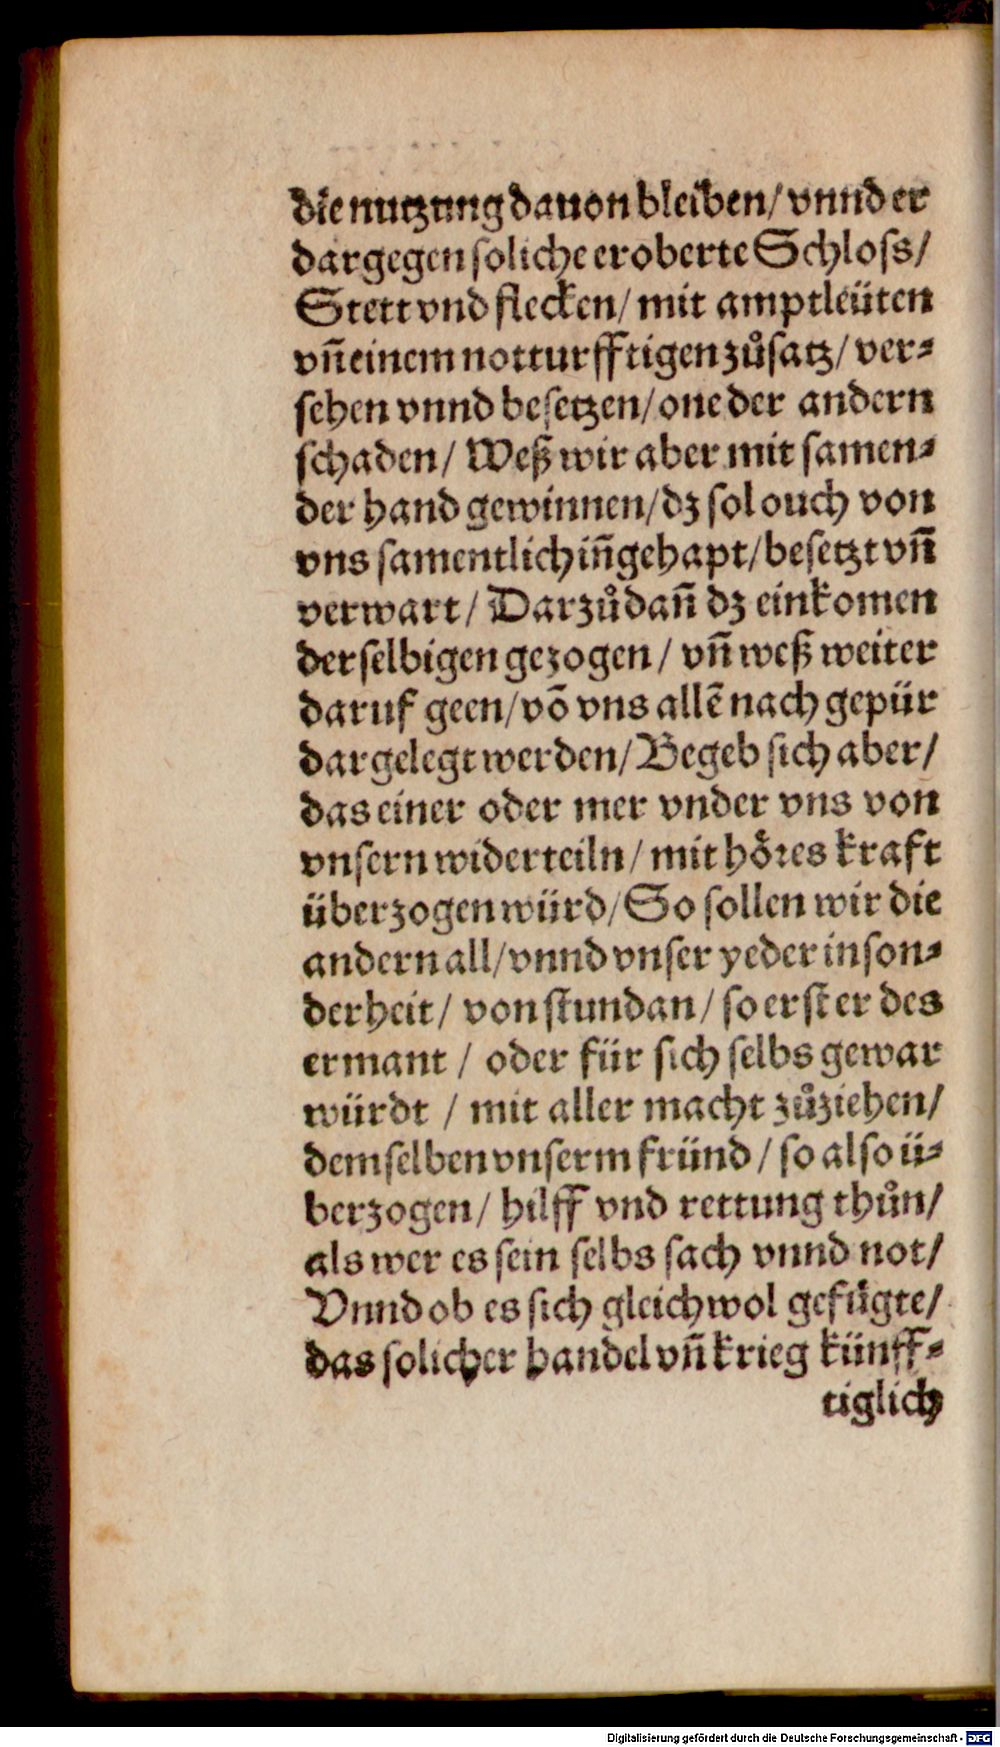 die nutzung dauon bleiben/ vnnd er
dargegen soliche eroberte Schloss/
Stett vnd flecken/ mit amptleüten
vñ einem notturfftigen zůsatz/ ver⸗
sehen vnnd besetzen/ one der andern
schaden/ Weß wir aber mit samen⸗
der hand gewinnen/ dz sol ouch von
vns samentlich iñgehapt/ besetzt vñ
verwart/ Darzů dañ dz einkomen
derselbigen gezogen/ vñ weß weiter
daruf geen/ võ vns allẽ nach gepür
dargelegt werden/ Begeb sich aber/
das einer oder mer vnder vns von
vnsern widerteiln/ mit hőres kraft
überzogen würd/ So sollen wir die
andern all/ vnnd vnser yeder in son⸗
derheit/ von stundan/ so erst er des
ermant / oder für sich selbs gewar
würdt / mit aller macht zůziehen/
demselben vnserm fründ / so also ü⸗
berzogen/ hilff vnd rettung thůn/
als wer es sein selbs sach vnnd not/
Vnnd ob es sich gleichwol gefůgte/
das solicher handel vñ krieg künff⸗
tiglich
Digitalisierung gefördert durch die Deutsche Forschungsgemeinschaft - DFG